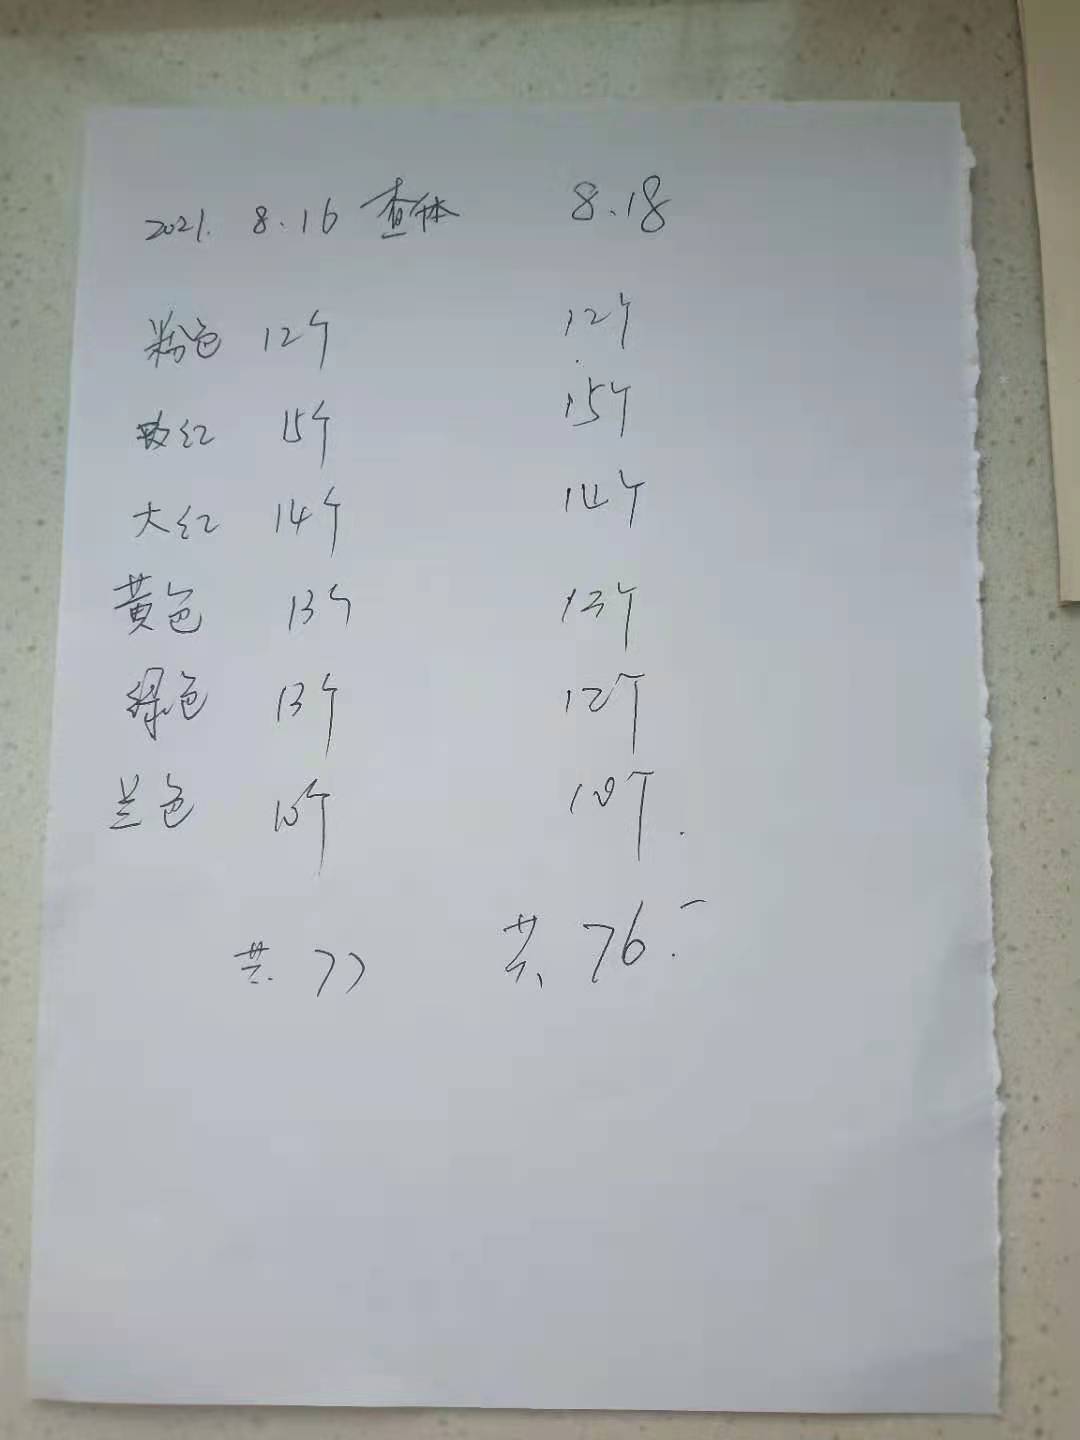 2021. 8.16 查体 8.18
粉色 12个 12个
玫红 15个 15个
大红 14个 14个
黄色 13个 13个
绿色 13个 12个
兰色 10个 10个.
共. 77 共 76.